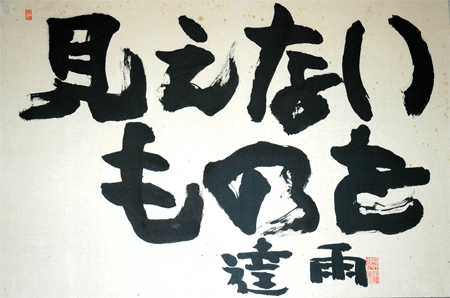 見えない
ものを
達雨